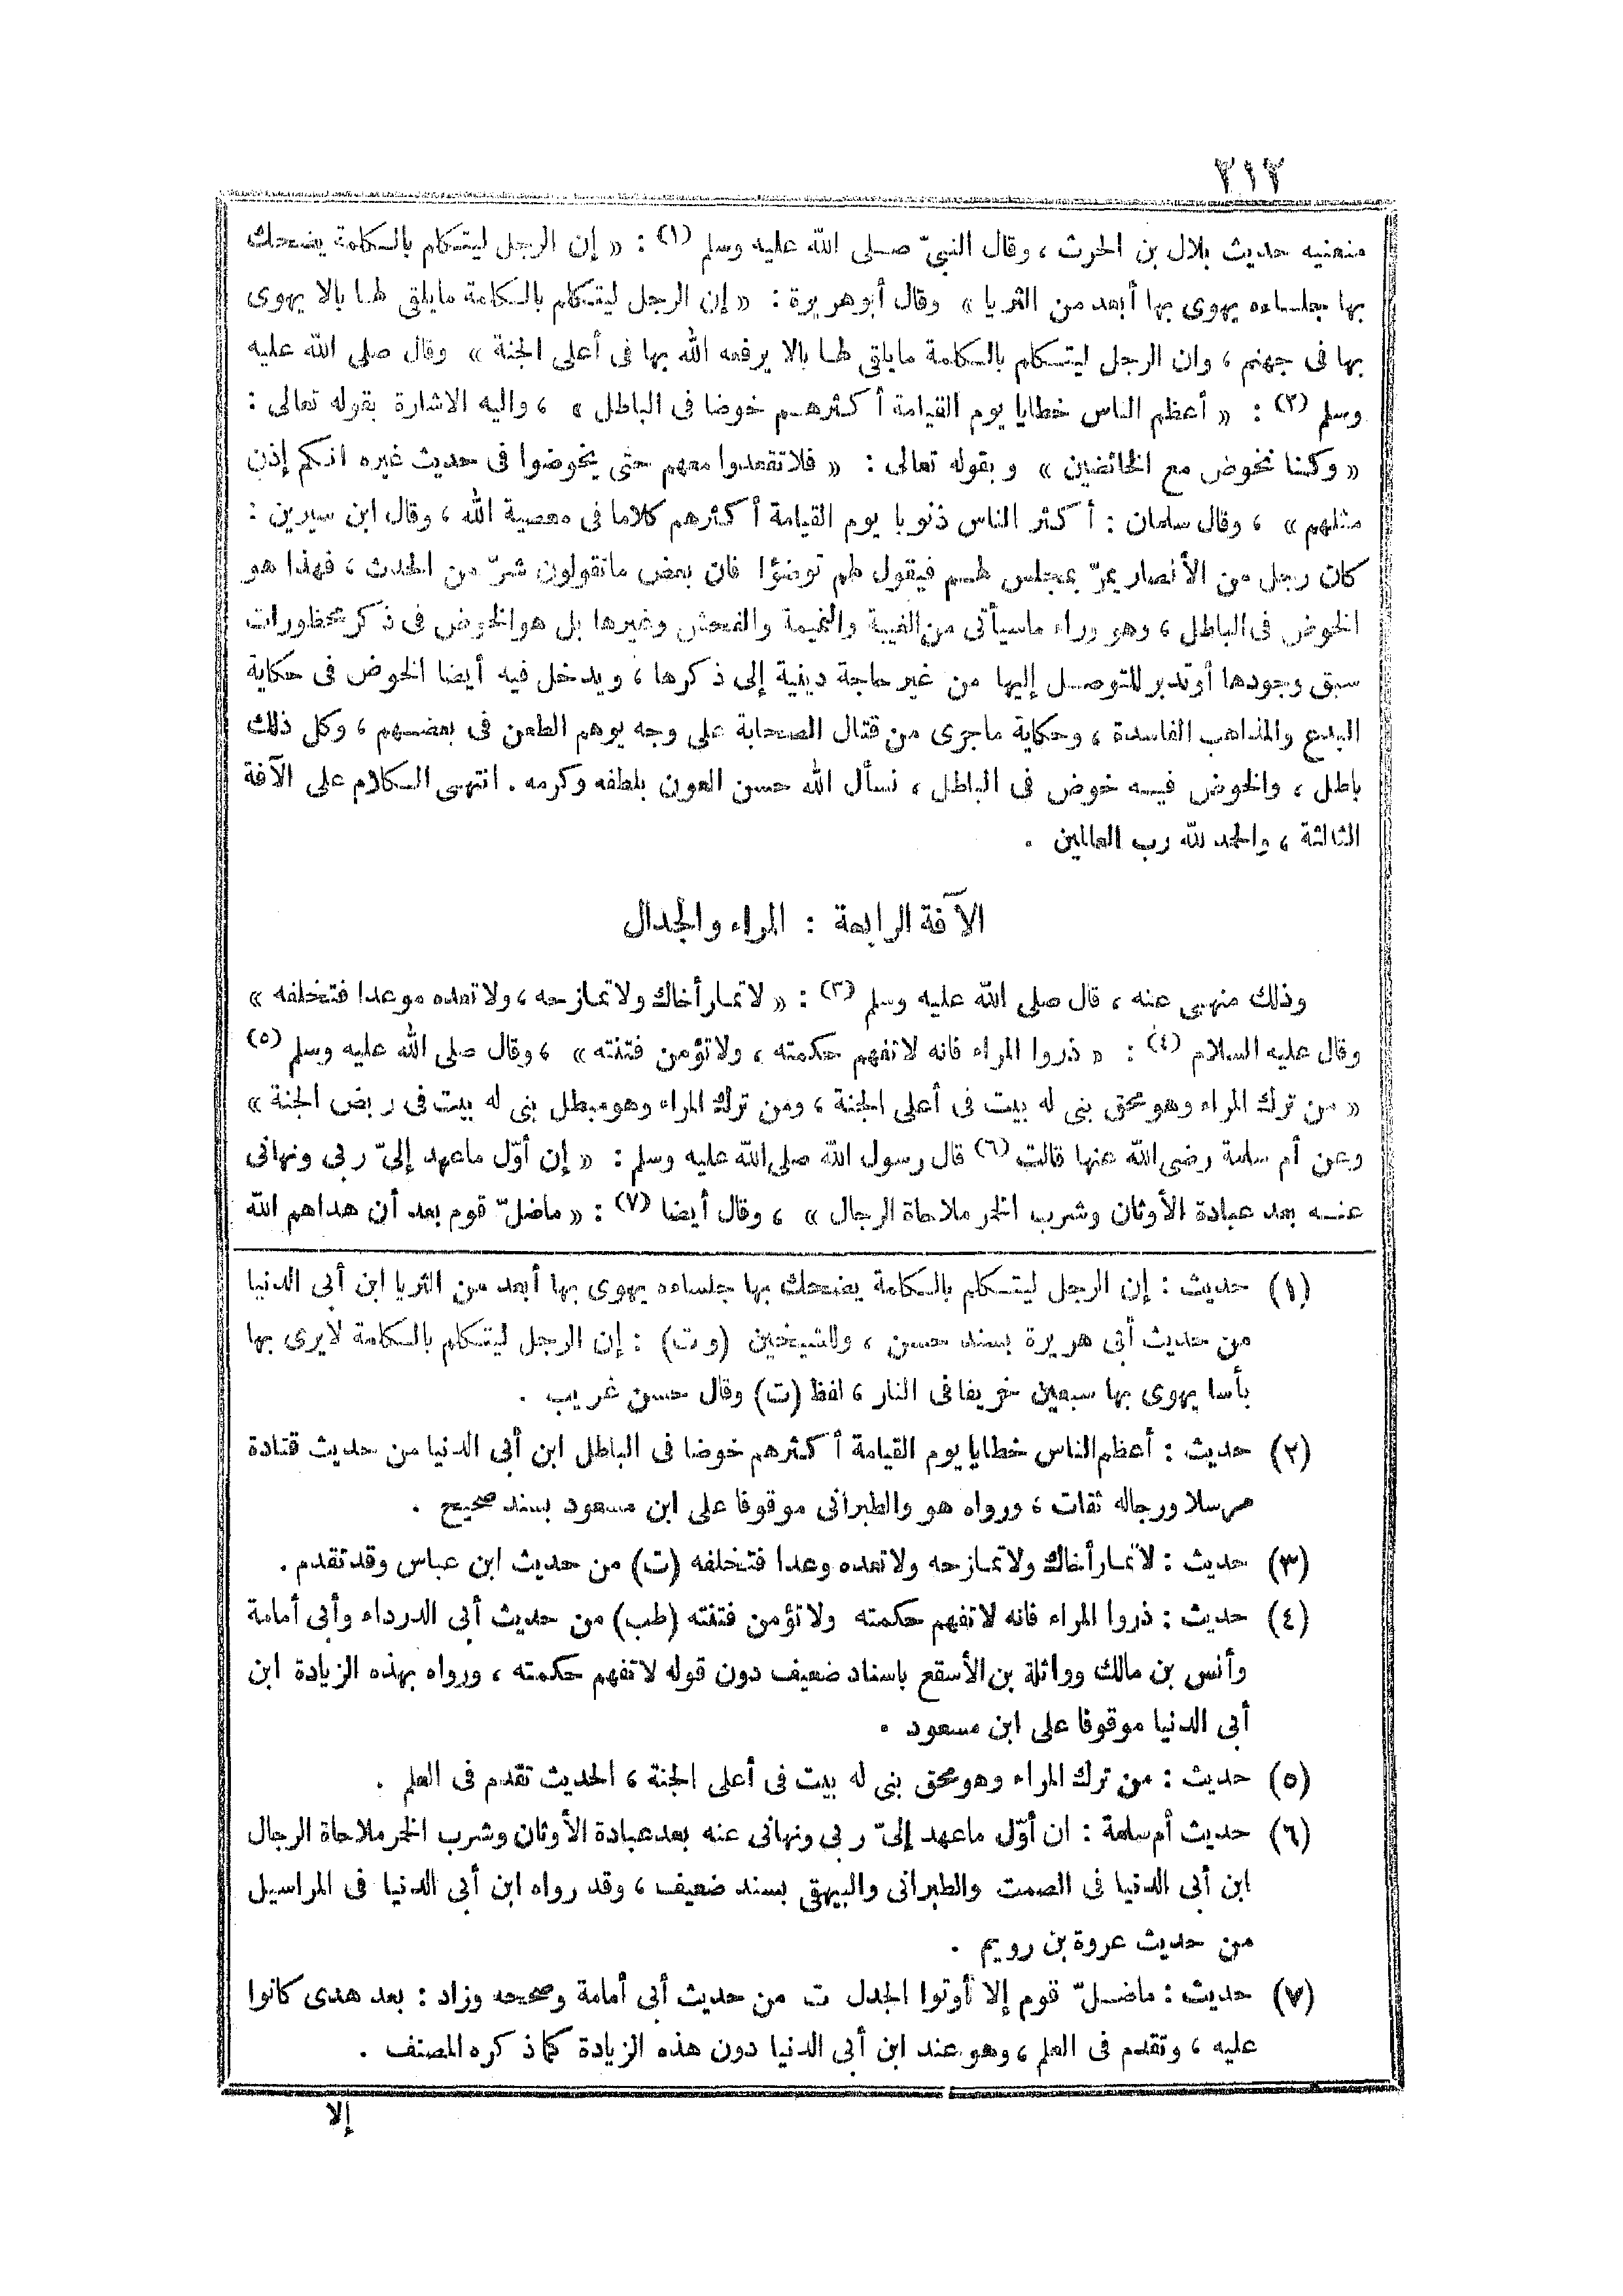 ٣١٢
منعنيه حديث بلال بن الحرث ، وقال النبىّ صلى الله عليه وسلم (١) : « إن الرجل ليتكلم بالكلمة يضحك
بها جلساءه يهوى بها أبعد من الثريا » وقال أبوهريرة : « إن الرجل ليتكلم بالكلمة مايلقى لها بالا يهوى
بها فى جهنم ، وان الرجل ليتكلم بالكلمة مايلقى لها بالا يرفعه الله بها فى أعلى الجنة » وقال صلى الله عليه
وسلم (٢) : « أعظم الناس خطايا يوم القيامة أكثرهم خوضا فى الباطل » ، واليه الاشارة بقوله تعالى :
« وكنا نخوض مع الخائضين » وبقوله تعالى : « فلاتقعدوا معهم حتى يخوضوا فى حديث غيره انكم إذن
مثلهم » ، وقال سلمان : أكثر الناس ذنوبا يوم القيامة أكثرهم كلاما فى معصية الله ، وقال ابن سيرين :
كان رجل من الأنصار يمرّ بمجلس لهم فيقول لهم توضؤا فان بعض ماتقولون شرّ من الحدث ، فهذا هو
الخوض فى الباطل ، وهو وراء ماسيأتى من الغيبة والنميمة والفحش وغيرها بل هوالخوض فى ذكر محظورات
سبق وجودها أوتدبر للتوصل إليها من غير حاجة دينية إلى ذكرها ، ويدخل فيه أيضا الخوض فى حكاية
البدع والمذاهب الفاسدة ، وحكاية ماجرى من قتال الصحابة على وجه يوهم الطعن فى بعضهم ، وكل ذلك
باطل ، والخوض فيه خوض فى الباطل ، نسأل الله حسن العون بلطفه وكرمه . انتهى الكلام على الآفة
الثالثة ، والحمد لله رب العالمين .
الآفة الرابعة : المراء والجدال
وذلك منهى عنه ، قال صلى الله عليه وسلم (٣) : « لاتمار أخاك ولاتمازحه ، ولاتعده موعدا فتخلفه »
وقال عليه السلام (٤) : « ذروا المراء فانه لاتفهم حكمته ، ولاتؤمن فتنته » ، وقال صلى الله عليه وسلم (٥)
« من ترك المراء وهومحق بنى له بيت فى أعلى الجنة ، ومن ترك المراء وهومبطل بنى له بيت فى ربض الجنة »
وعن أم سلمة رضى الله عنها قالت (٦) قال رسول الله صلى الله عليه وسلم : « إن أوّل ماعهد إلىّ ربى ونهانى
عنه بعد عبادة الأوثان وشرب الخمر ملاحاة الرجال » ، وقال أيضا (٧) : « ماضلّ قوم بعد أن هداهم الله
(١) حديث : إن الرجل ليتكلم بالكلمة يضحك بها جلساءه يهوى بها أبعد من الثريا ابن أبى الدنيا
من حديث أبى هريرة بسند حسن ، وللشيخين (وت) : إن الرجل ليتكلم بالكلمة لايرى بها
بأسا يهوى بها سبعين خريفا فى النار ، لفظ (ت) وقال حسن غريب .
(٢) حديث : أعظم الناس خطايا يوم القيامة أكثرهم خوضا فى الباطل ابن أبى الدنيا من حديث قتادة
مرسلا ورجاله ثقات ، ورواه هو والطبرانى موقوفا على ابن مسعود بسند صحيح .
(٣) حديث : لاتمار أخاك ولاتمازحه ولاتعده وعدا فتخلفه (ت) من حديث ابن عباس وقد تقدم .
(٤) حديث : ذروا المراء فانه لاتفهم حكمته ولاتؤمن فتنته (طب) من حديث أبى الدرداء وأبى أمامة
وأنس بن مالك وواثلة بن الأسقع باسناد ضعيف دون قوله لاتفهم حكمته ، ورواه بهذه الزيادة ابن
أبى الدنيا موقوفا على ابن مسعود .
(٥) حديث : من ترك المراء وهومحق بنى له بيت فى أعلى الجنة ، الحديث تقدم فى العلم .
(٦) حديث أم سلمة : ان أوّل ماعهد إلىّ ربى ونهانى عنه بعد عبادة الأوثان وشرب الخمر ملاحاة الرجال
ابن أبى الدنيا فى الصمت والطبرانى والبيهقى بسند ضعيف ، وقد رواه ابن أبى الدنيا فى المراسيل
من حديث عروة بن رويم .
(٧) حديث : ماضلّ قوم إلا أوتوا الجدل ت من حديث أبى أمامة وصححه وزاد : بعد هدى كانوا
عليه ، وتقدم فى العلم ، وهو عند ابن أبى الدنيا دون هذه الزيادة كماذكره المصنف .
إلا